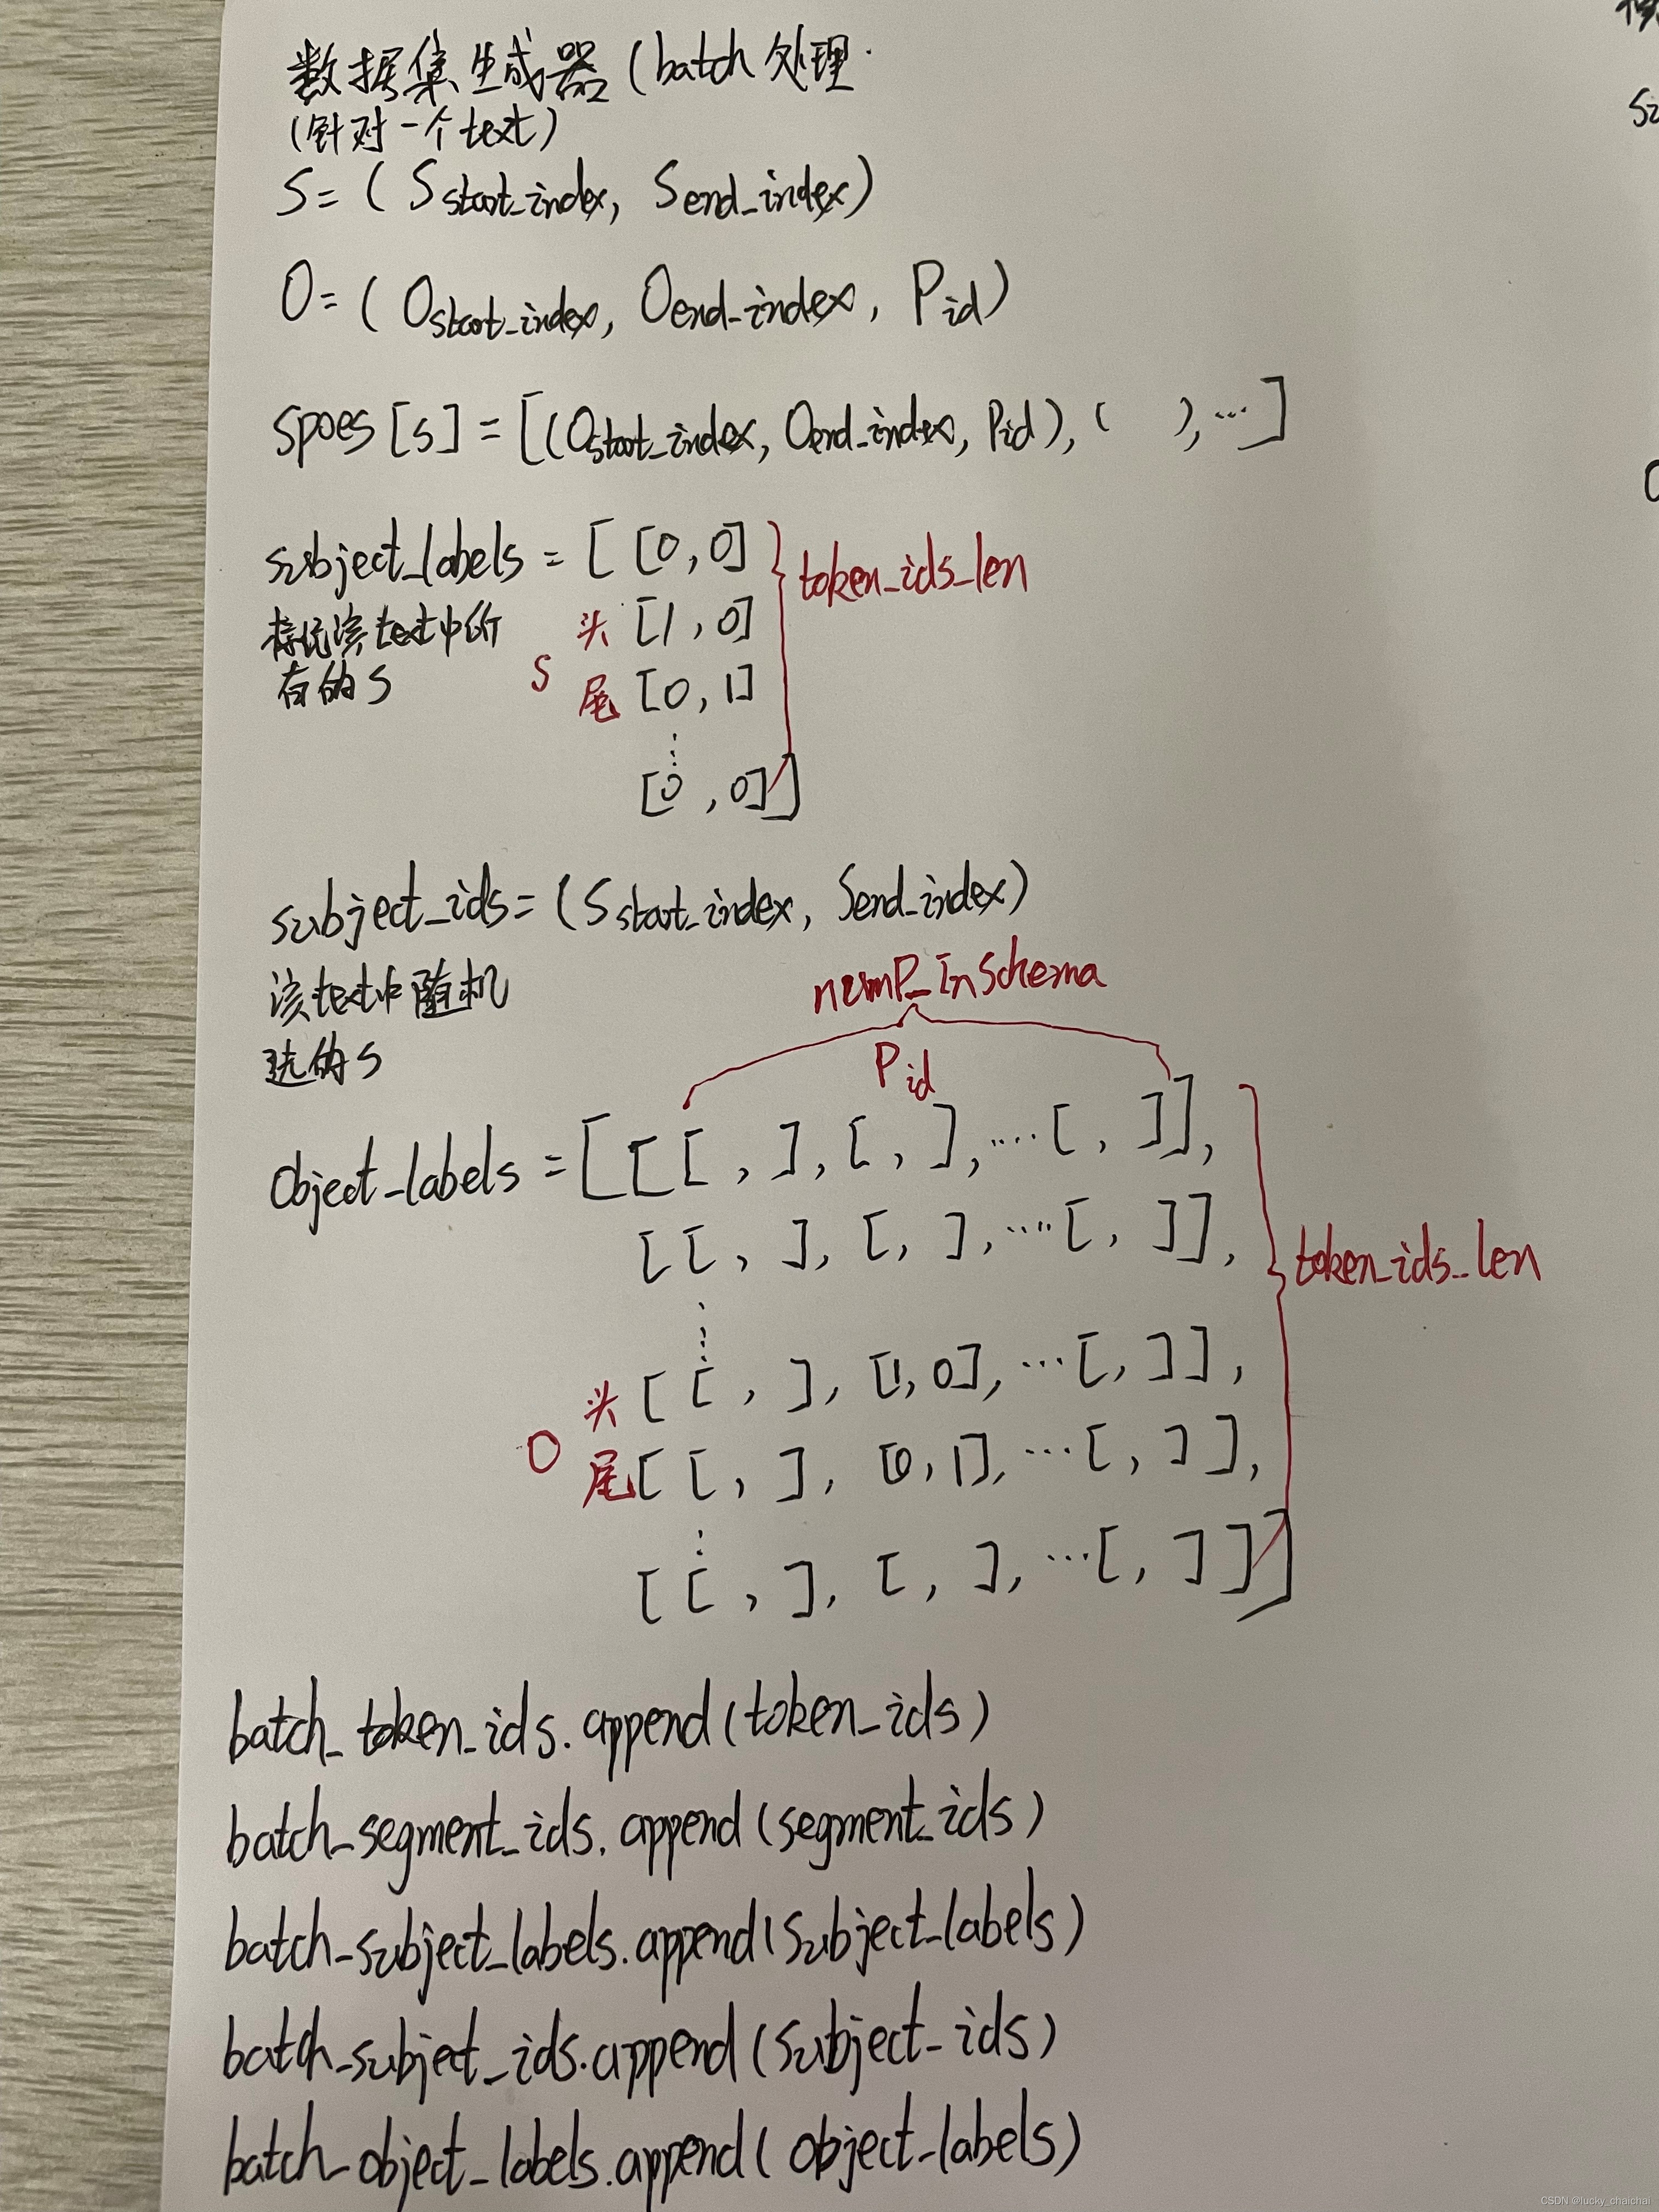 数据集生成器(batch 处理
(针对一个text)
S=(S start_index, S end_index)
O=(O start_index, O end_index, P id)
spoes[s]=[(O start_index, O end_index, P id),( ),…]
subject_labels = [[0,0]
token_ids_len
标记该text中所
头 [1,0]
有的S
S
尾 [0,1]
⋮
[0,0]]
subject_ids=(S start_index, S end_index)
该text中随机
选的S
numP_InSchema
P id
object_labels =[[[ , ],[ , ],…[ , ]],
[[ , ],[ , ],…[ , ]],
token_ids_len
⋮
头 [[ , ],[1,0],…[ , ]],
O
尾 [[ , ],[0,1],…[ , ]],
⋮
[[ , ],[ , ],…[ , ]]]
batch_token_ids.append(token_ids)
batch_segment_ids.append(segment_ids)
batch_subject_labels.append(subject_labels)
batch_subject_ids.append(subject_ids)
batch_object_labels.append(object_labels)
CSDN @lucky_chaichai